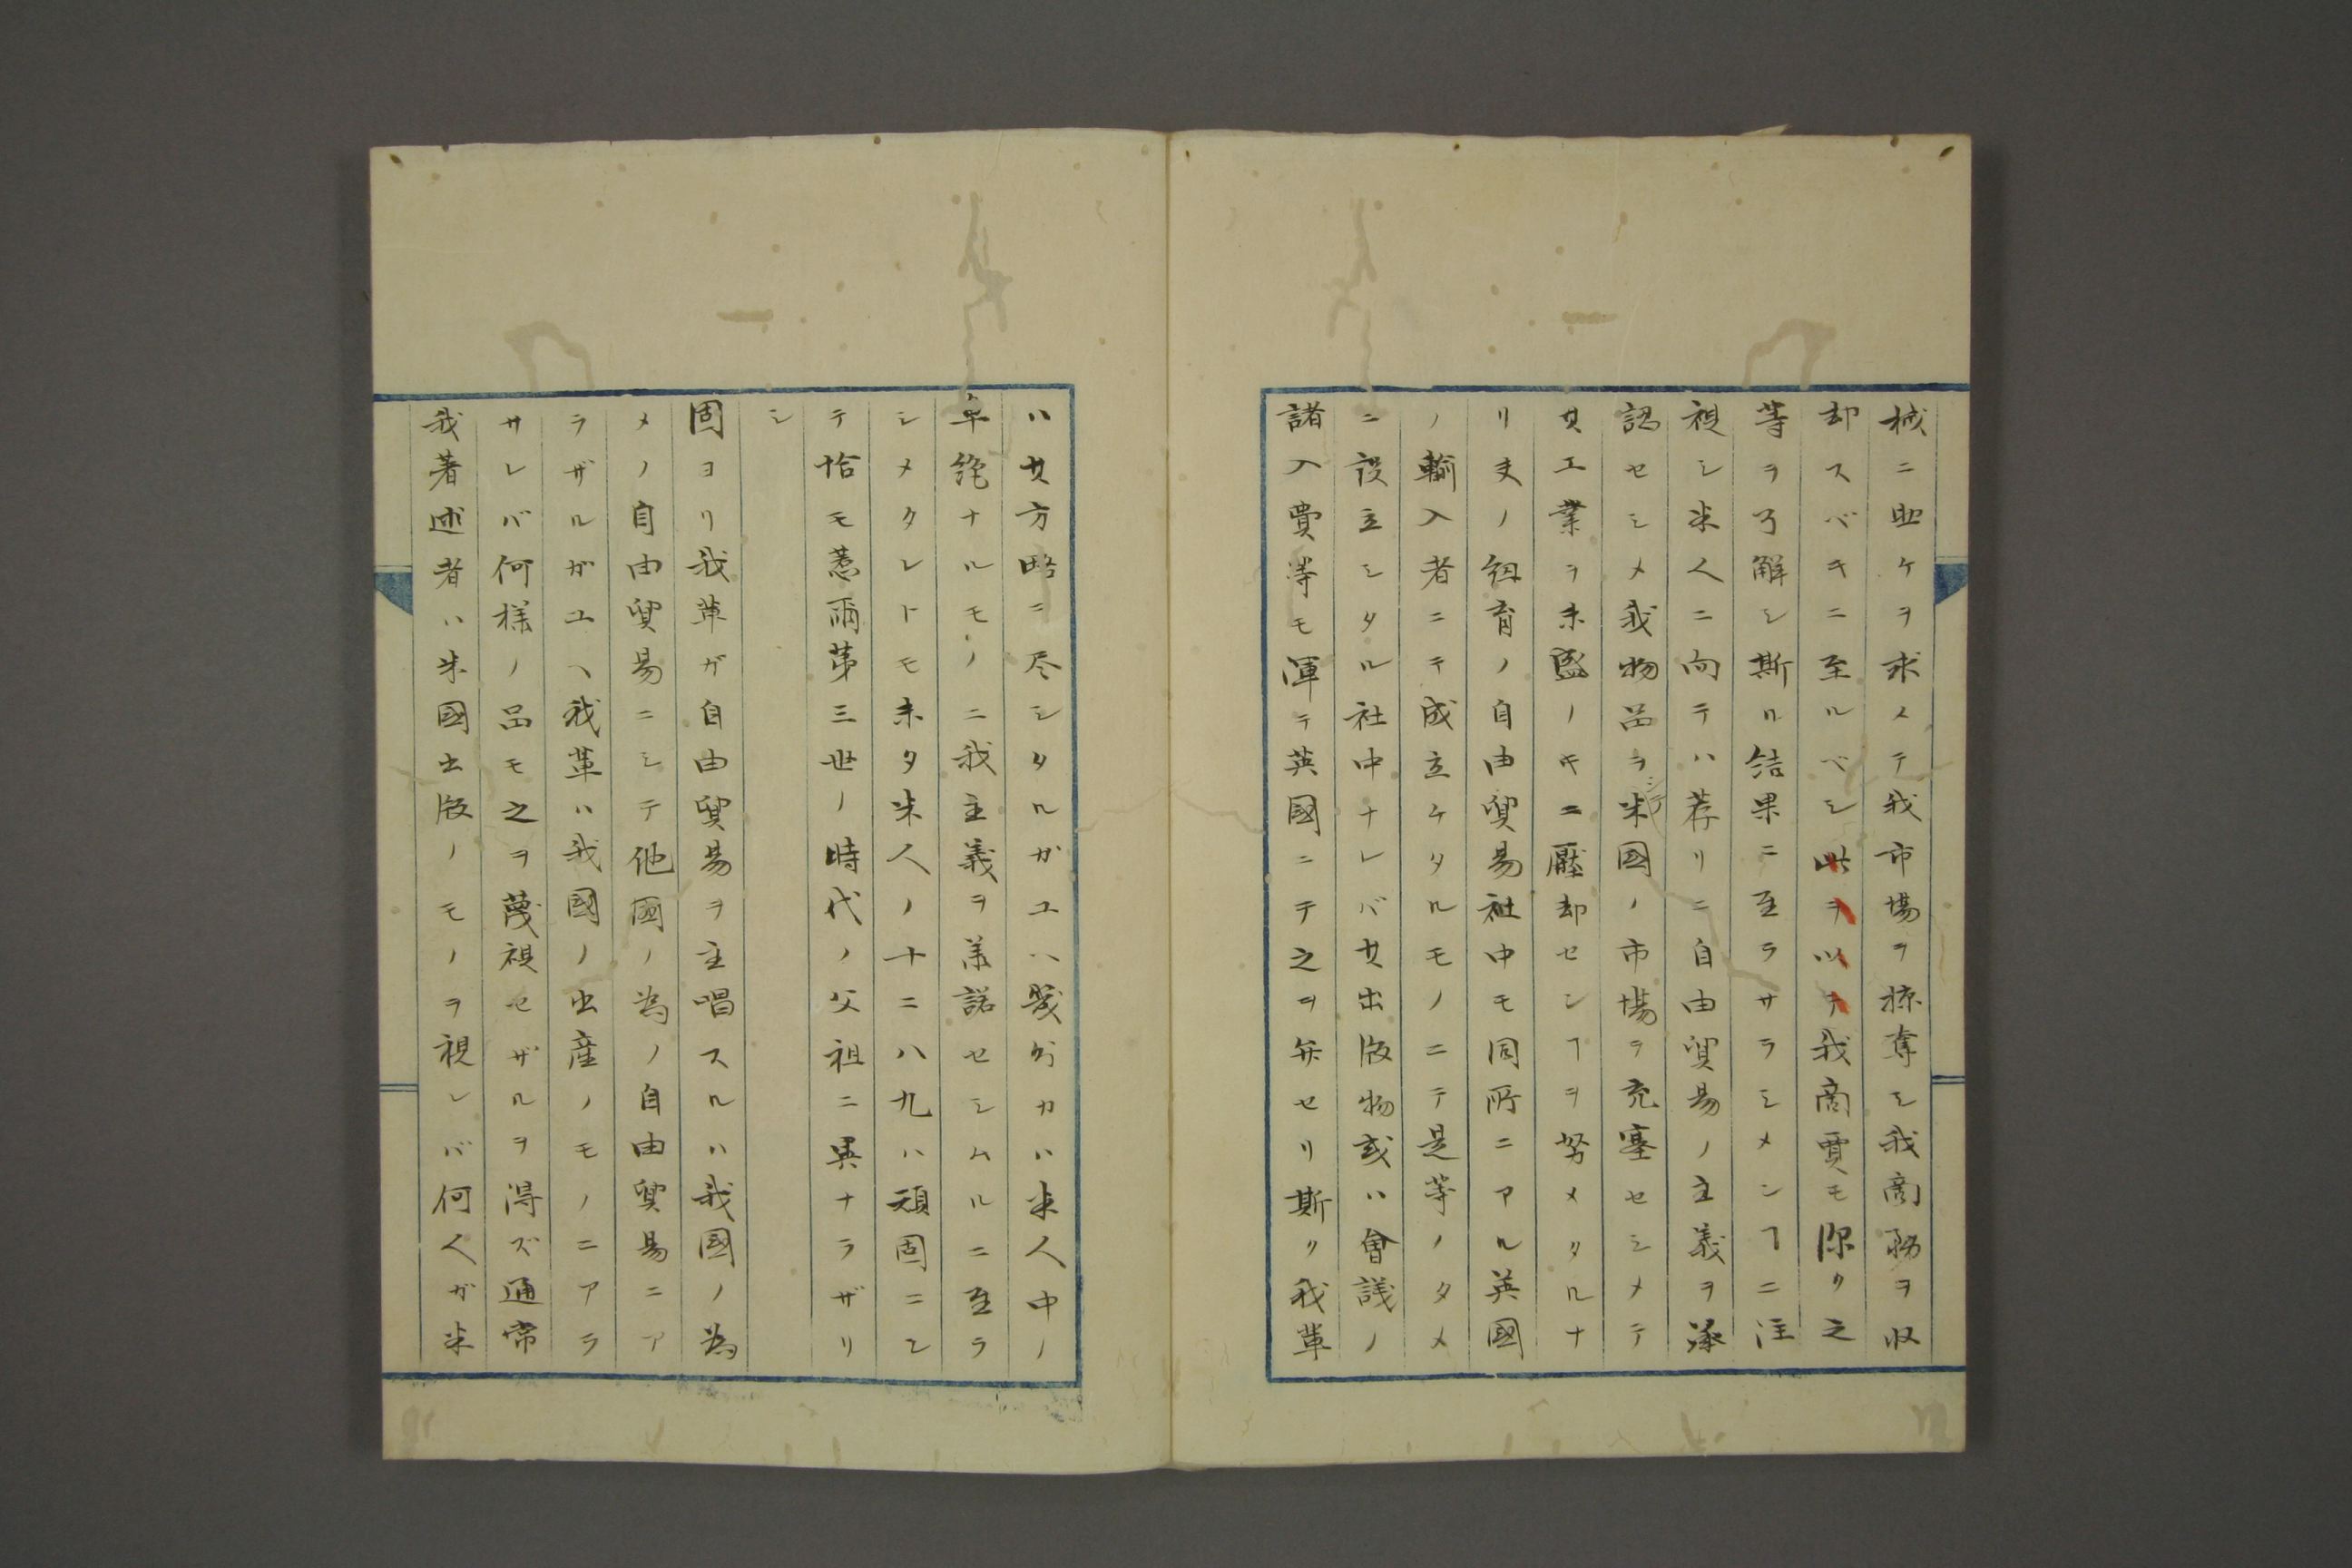 械ニ助ケヲ求メテ我市場ヲ掠奪シ我商務ヲ収
却スベキニ至ルベシ此ヲ以テ我商賈モ深ク之
等ヲ了解シ斯ル結果ニ至ラサラシメンヿニ注
視シ米人ニ向テハ荐リニ自由貿易ノ主義ヲ承
認セシメ我物品ヲシテ米國ノ市場ヲ充塞セシメテ
其工業ヲ未盛ノキニ壓却センヿヲ努メタルナ
リ夫ノ紐育ノ自由貿易社中モ同所ニアル英國
ノ輸入者ニテ成立ケタルモノニテ是等ノタメ
ニ設立シタル社中ナレバ其出版物或ハ會議ノ
諸入費等モ渾テ英國ニテ之ヲ弁セリ斯ク我輩
ハ其方略ニ尽シタルガユヘ幾分カハ米人中ノ
卓絶ナルモノニ我主義ヲ承諾セシムルニ至ラ
シメタレトモ未タ米人ノ十ニ八九ハ頑固ニシ
テ恰モ惹爾第三世ノ時代ノ父祖ニ異ナラザリ
シ
固ヨリ我輩ガ自由貿易ヲ主唱スルハ我國ノ為
メノ自由貿易ニシテ他國ノ為ノ自由貿易ニア
ラザルガユヘ我輩ハ我國ノ出産ノモノニアラ
サレバ何様ノ品モ之ヲ蔑視セザルヲ得ズ通常
我著述者ハ米國出版ノモノヲ視レバ何人ガ米